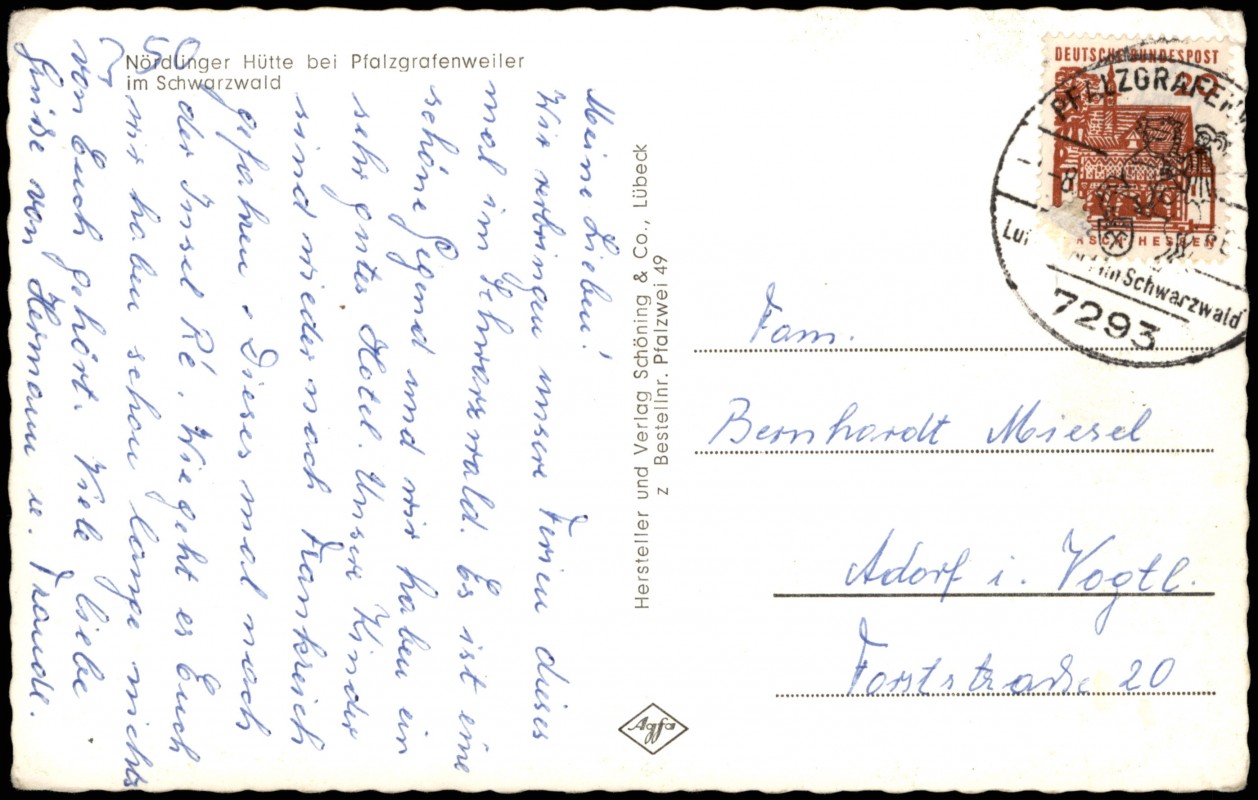 Nördlinger Hütte bei Pfalzgrafenweiler
im Schwarzwald
Meine Lieben!
Wir verbringen unsere Ferien dieses
mal im Schwarzwald. Es ist eine
schöne Gegend und wir haben ein
sehr gutes Hotel. Unsere Kinder
sind wieder nach Frankreich
gefahren. Dieses mal nach
der Insel Ré. Wie geht es Euch
wir haben schon lange nichts
von Euch gehört. Viele liebe
Grüße von Hermann u. Traude.
Hersteller und Verlag Schöning & Co., Lübeck
z Bestellnr. Pfalzwei 49
Agfa
DEUTSCHE BUNDESPOST
PFALZGRAFEN
im Schwarzwald
7293
Fam.
Bernhardt Miesel
Adorf i. Vogtl.
Forststraße 20